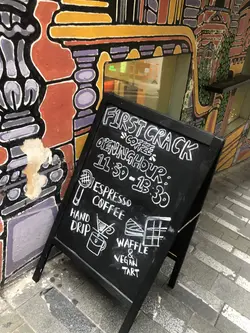 FIRST CRACK
COFFEE &
OPENING HOUR:
11:30 - 18:30
ESPRESSO
COFFEE
HAND
DRIP
WAFFLE
&
VEGAN
TART